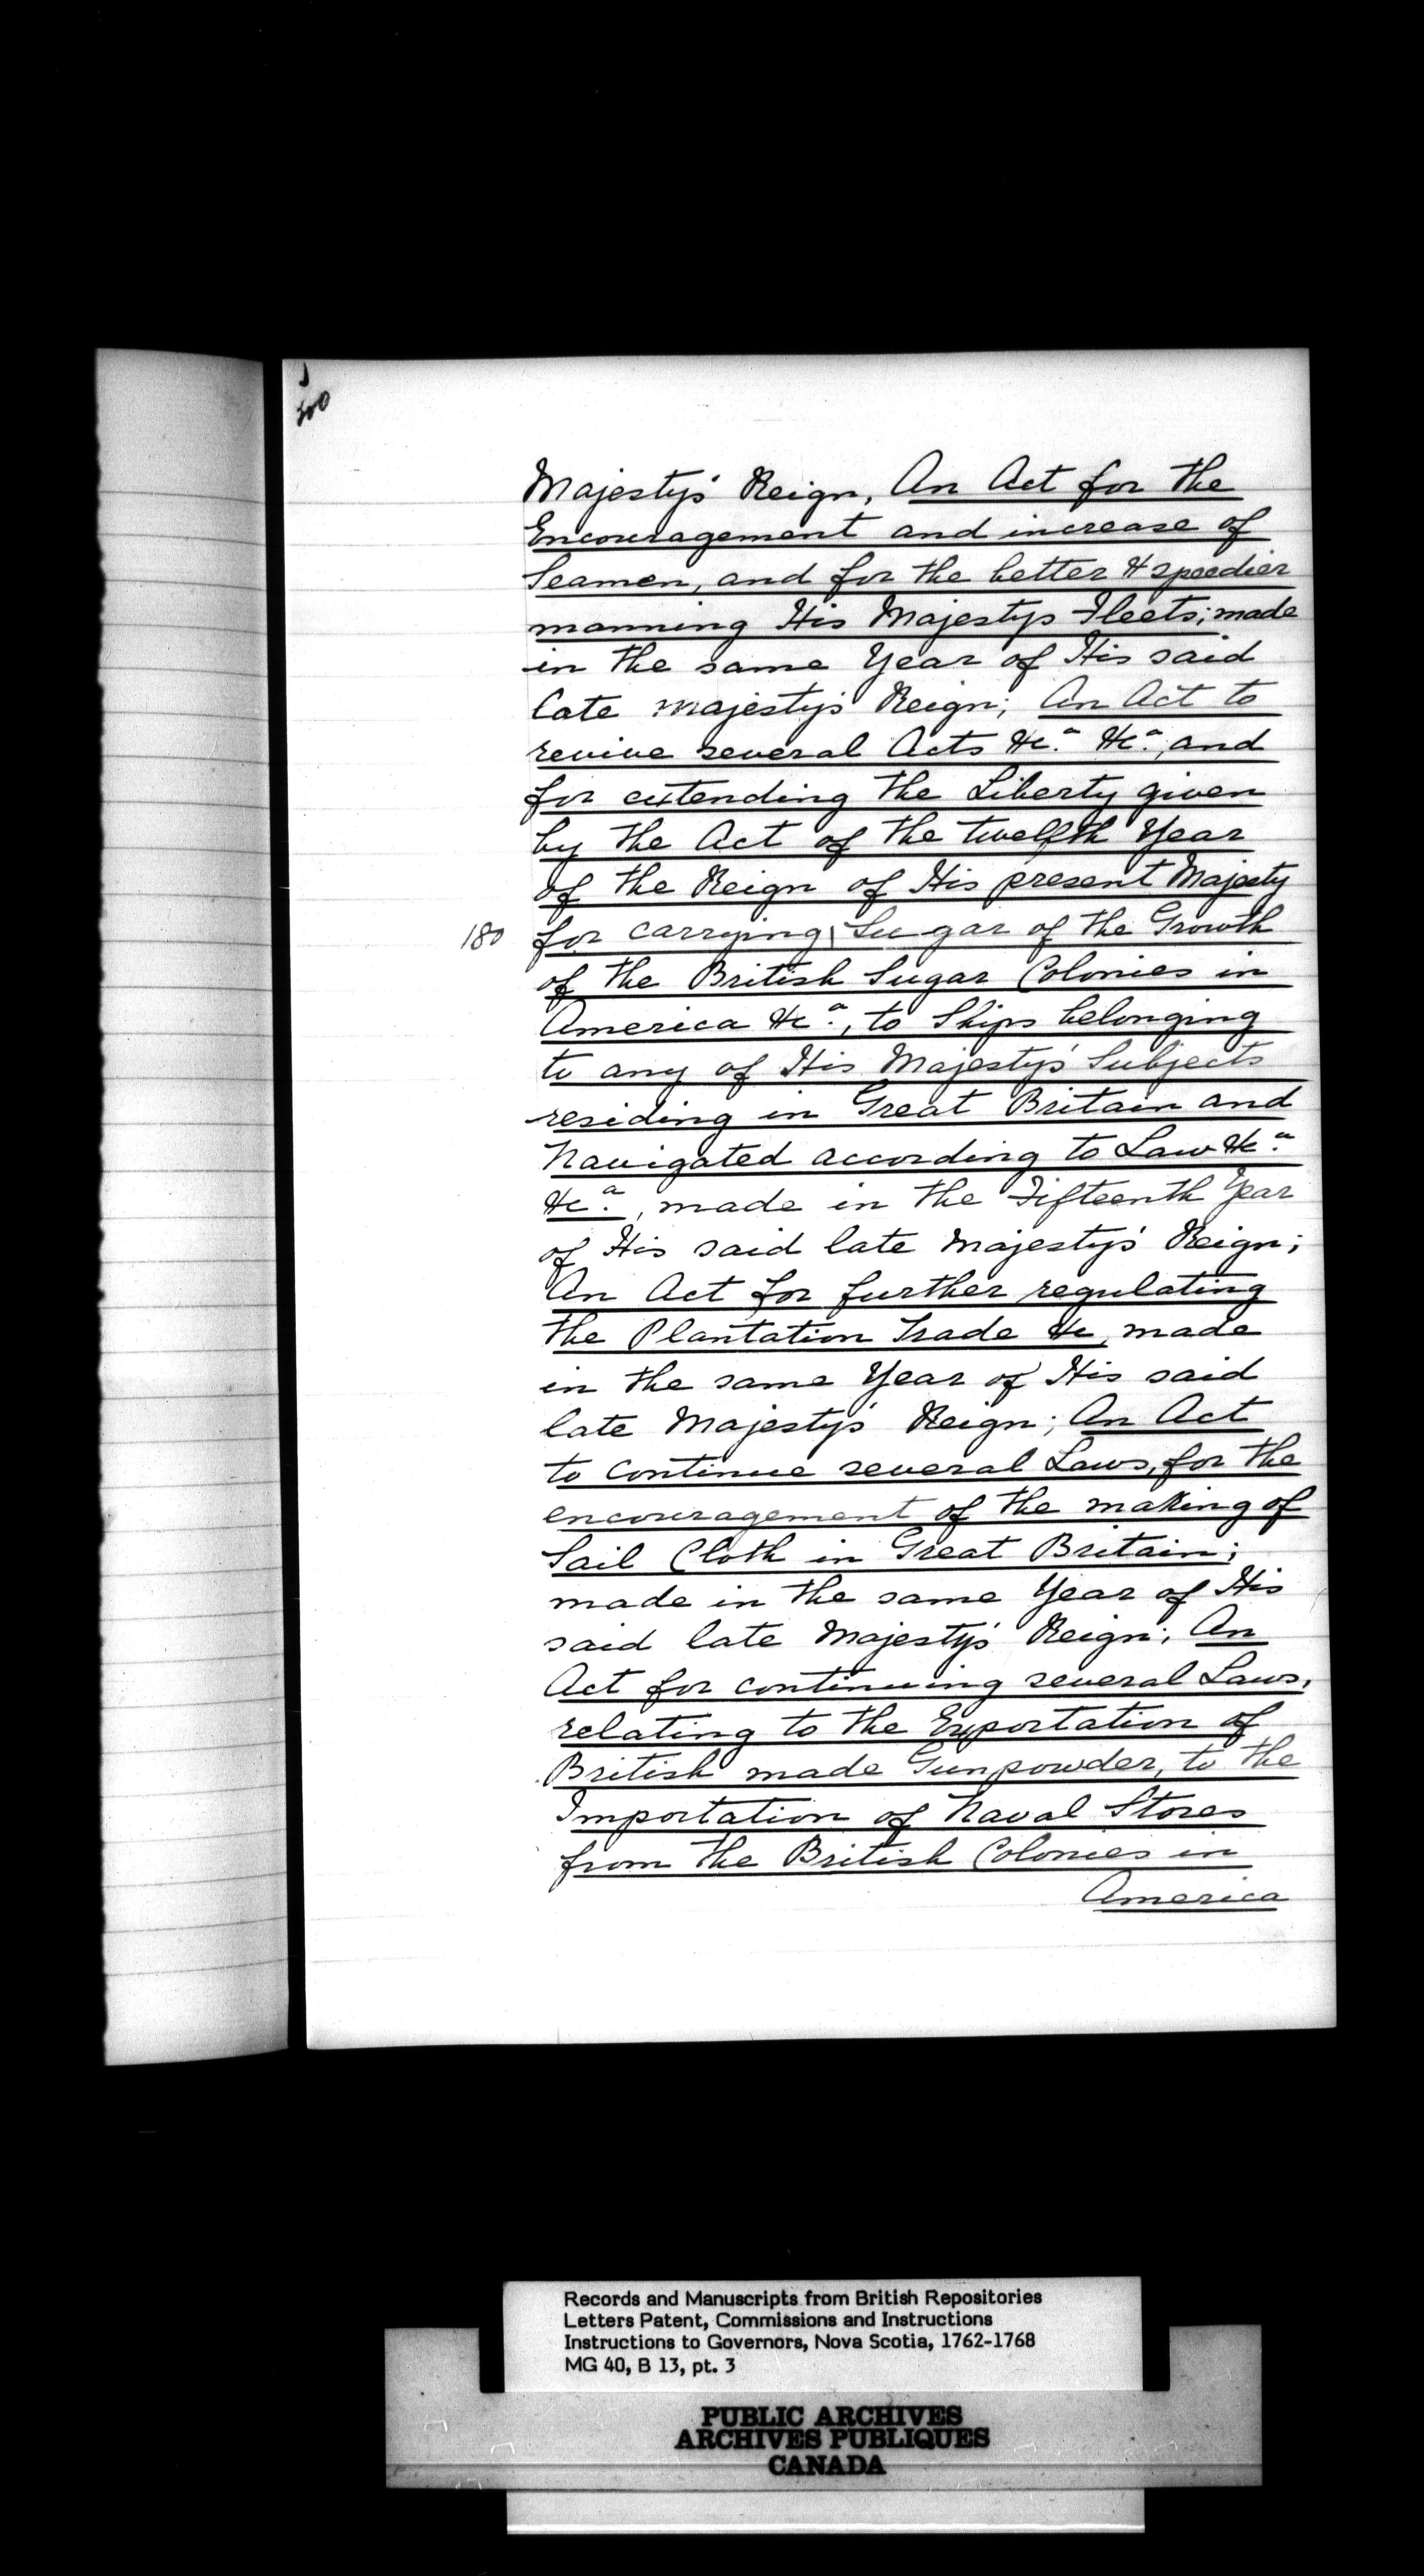 300
Majesty's Reign, An Act for the
Encouragement and increase of
Seamen, and for the better & speedier
manning His Majestys Fleets; made
in the same Year of His said
late Majesty's Reign; An Act to
revive several Acts &c.a &c.a, and
for extending the Liberty given
by the Act of the twelfth Year
of the Reign of His present Majesty
180 for carrying | Sugar of the Growth
of the British Sugar Colonies in
America &c.a, to Ships belonging
to any of His Majesty's Subjects
residing in Great Britain and
Navigated according to Law &c.a
&c.a, made in the Fifteenth Year
of His said late Majesty's Reign;
An Act for further regulating
the Plantation Trade &c, made
in the same Year of His said
late Majesty's Reign; An Act
to continue several Laws, for the
encouragement of the making of
Sail Cloth in Great Britain;
made in the same Year of His
said late Majesty's Reign; An
Act for continuing several Laws,
relating to the Exportation of
British made Gunpowder, to the
Importation of Naval Stores
from the British Colonies in
America
Records and Manuscripts from British Repositories
Letters Patent, Commissions and Instructions
Instructions to Governors, Nova Scotia, 1762-1768
MG 40, B 13, pt. 3
PUBLIC ARCHIVES
ARCHIVES PUBLIQUES
CANADA